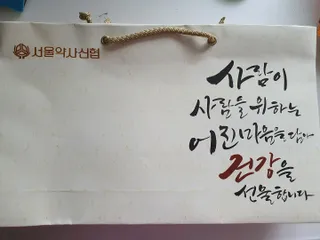 서울약사신협
사람이
사람을 위하는
어진 마음을 담아
건강을
선물합니다